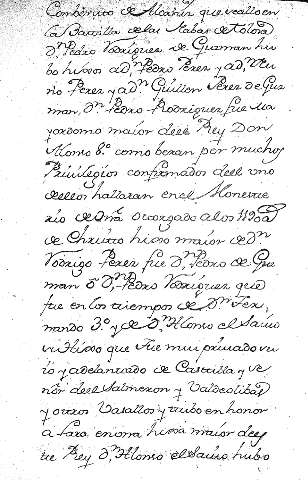 Comendario de Alcañiz que se allo en
la Batalla de las Nabas de Tolosa
Dn Pedro Rodriguez de Guzman hu
bo hixos a dn Pedro Perez y a dn Nu
ño Perez y a dn Guillen Perez de Guz
man, dn Pedro Rodriguez fue Ma
yordomo maior deel Rey Don
Alonso 8º como beran por muchos
Privilegios confirmados deel uno
de ellos hallaran en el Moneste
rio de otorgado a los 1120
de Christo hixo maior de dn
Rodrigo Perez fue dn Pedro de Guz
man ó dn Pedro Rodriguez que
fue en los tiempos de dn Fer
nando 3º y de dn Alonso el Sauio
su Hixo que fue mui priuado su
io y adelantado de Castilla y se
ñor deel Salmeron y Valdeolibas
y otros Vasallos y hubo en honor
a Faro en otra hixa maior dees
te Rey Dn Alonso el Sauio, hubo